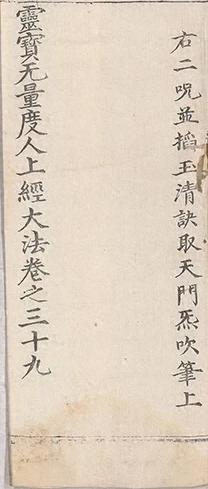 右二呪並搯玉清訣取天門炁吹筆上
靈寶无量度人上經大法卷之三十九